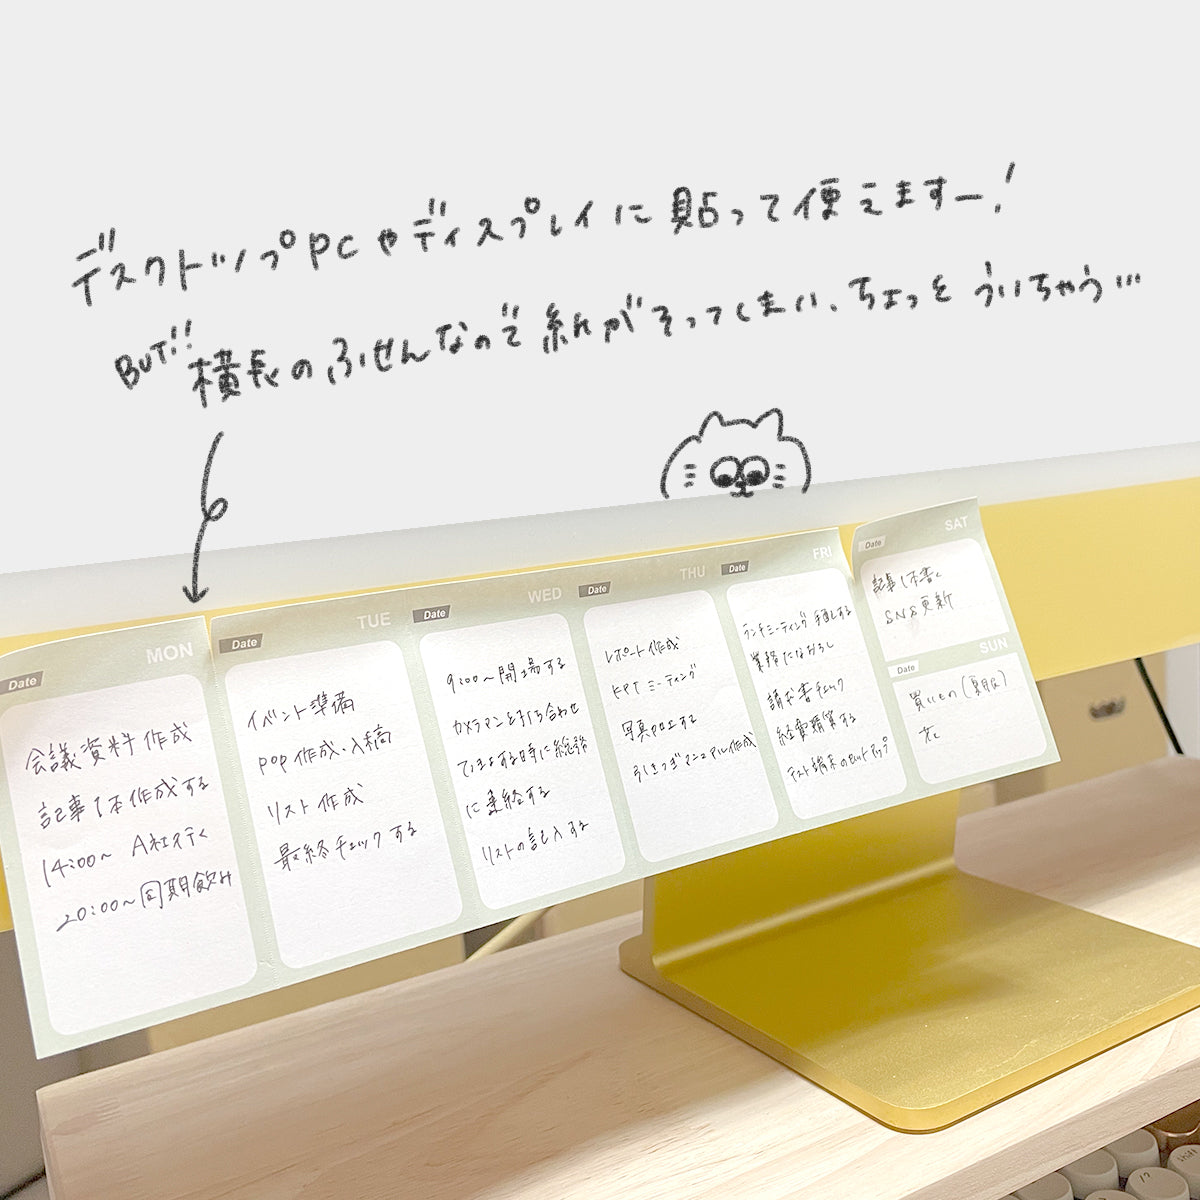 デスクトップPCやディスプレイに貼って使えますー!
BUT!! 横長のふせんなので紙がそってしまい、ちょっとういちゃう…
MON
Date
会議資料作成
記事1本作成する
14:00〜 A社行く
20:00〜同期飲み
TUE
Date
イベント準備
POP作成・入稿
リスト作成
最終チェックする
WED
Date
9:00〜開場する
カメラマンと打ち合わせ
する時に総務
に連絡する
リストの記入する
THU
Date
レポート作成
KPTミーティング
写真UPする
引きつぎマニュアル作成
FRI
Date
ランチミーティング 手配する
業務になおろし
請求書チェック
経費精算する
テスト端末のセットアップ
SAT
Date
記事1本書く
SNS更新
SUN
Date
買いもの(夏服)